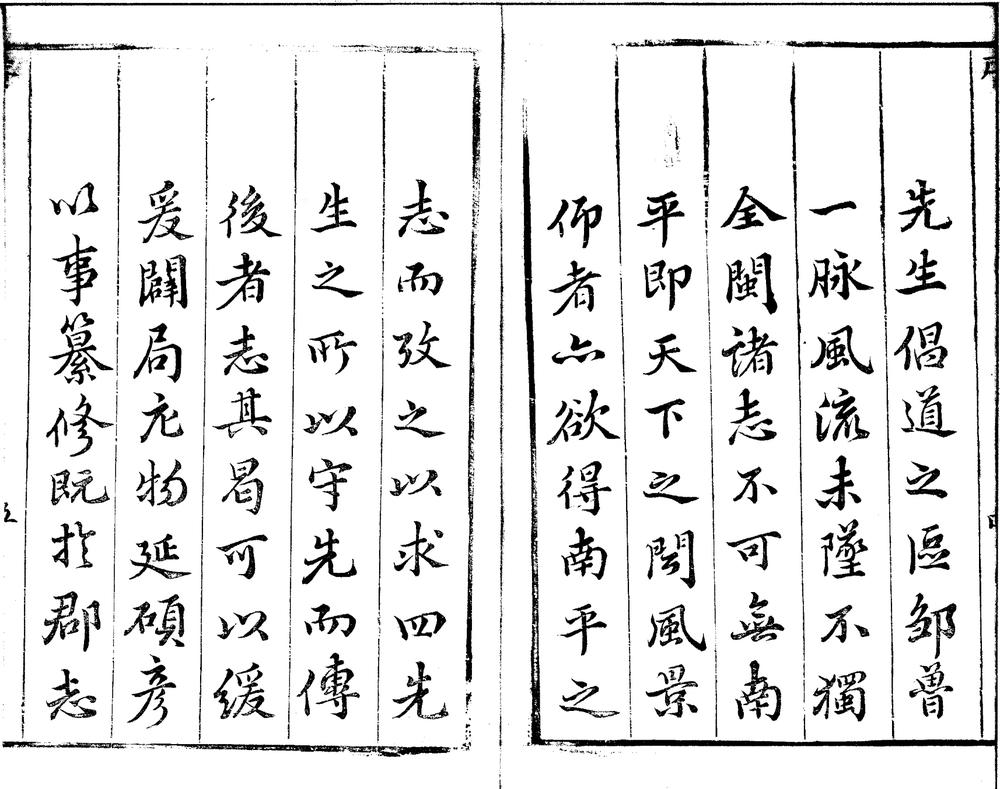 先生倡道之區鄒魯
一脉風流未墜不獨
全閩諸志不可無南
平即天下之聞風景
仰者亦欲得南平之
志而攷之以求四先
生之所以守先而傳
後者志其曷可以緩
爰闢局充物延碩彥
以事纂修既於郡志